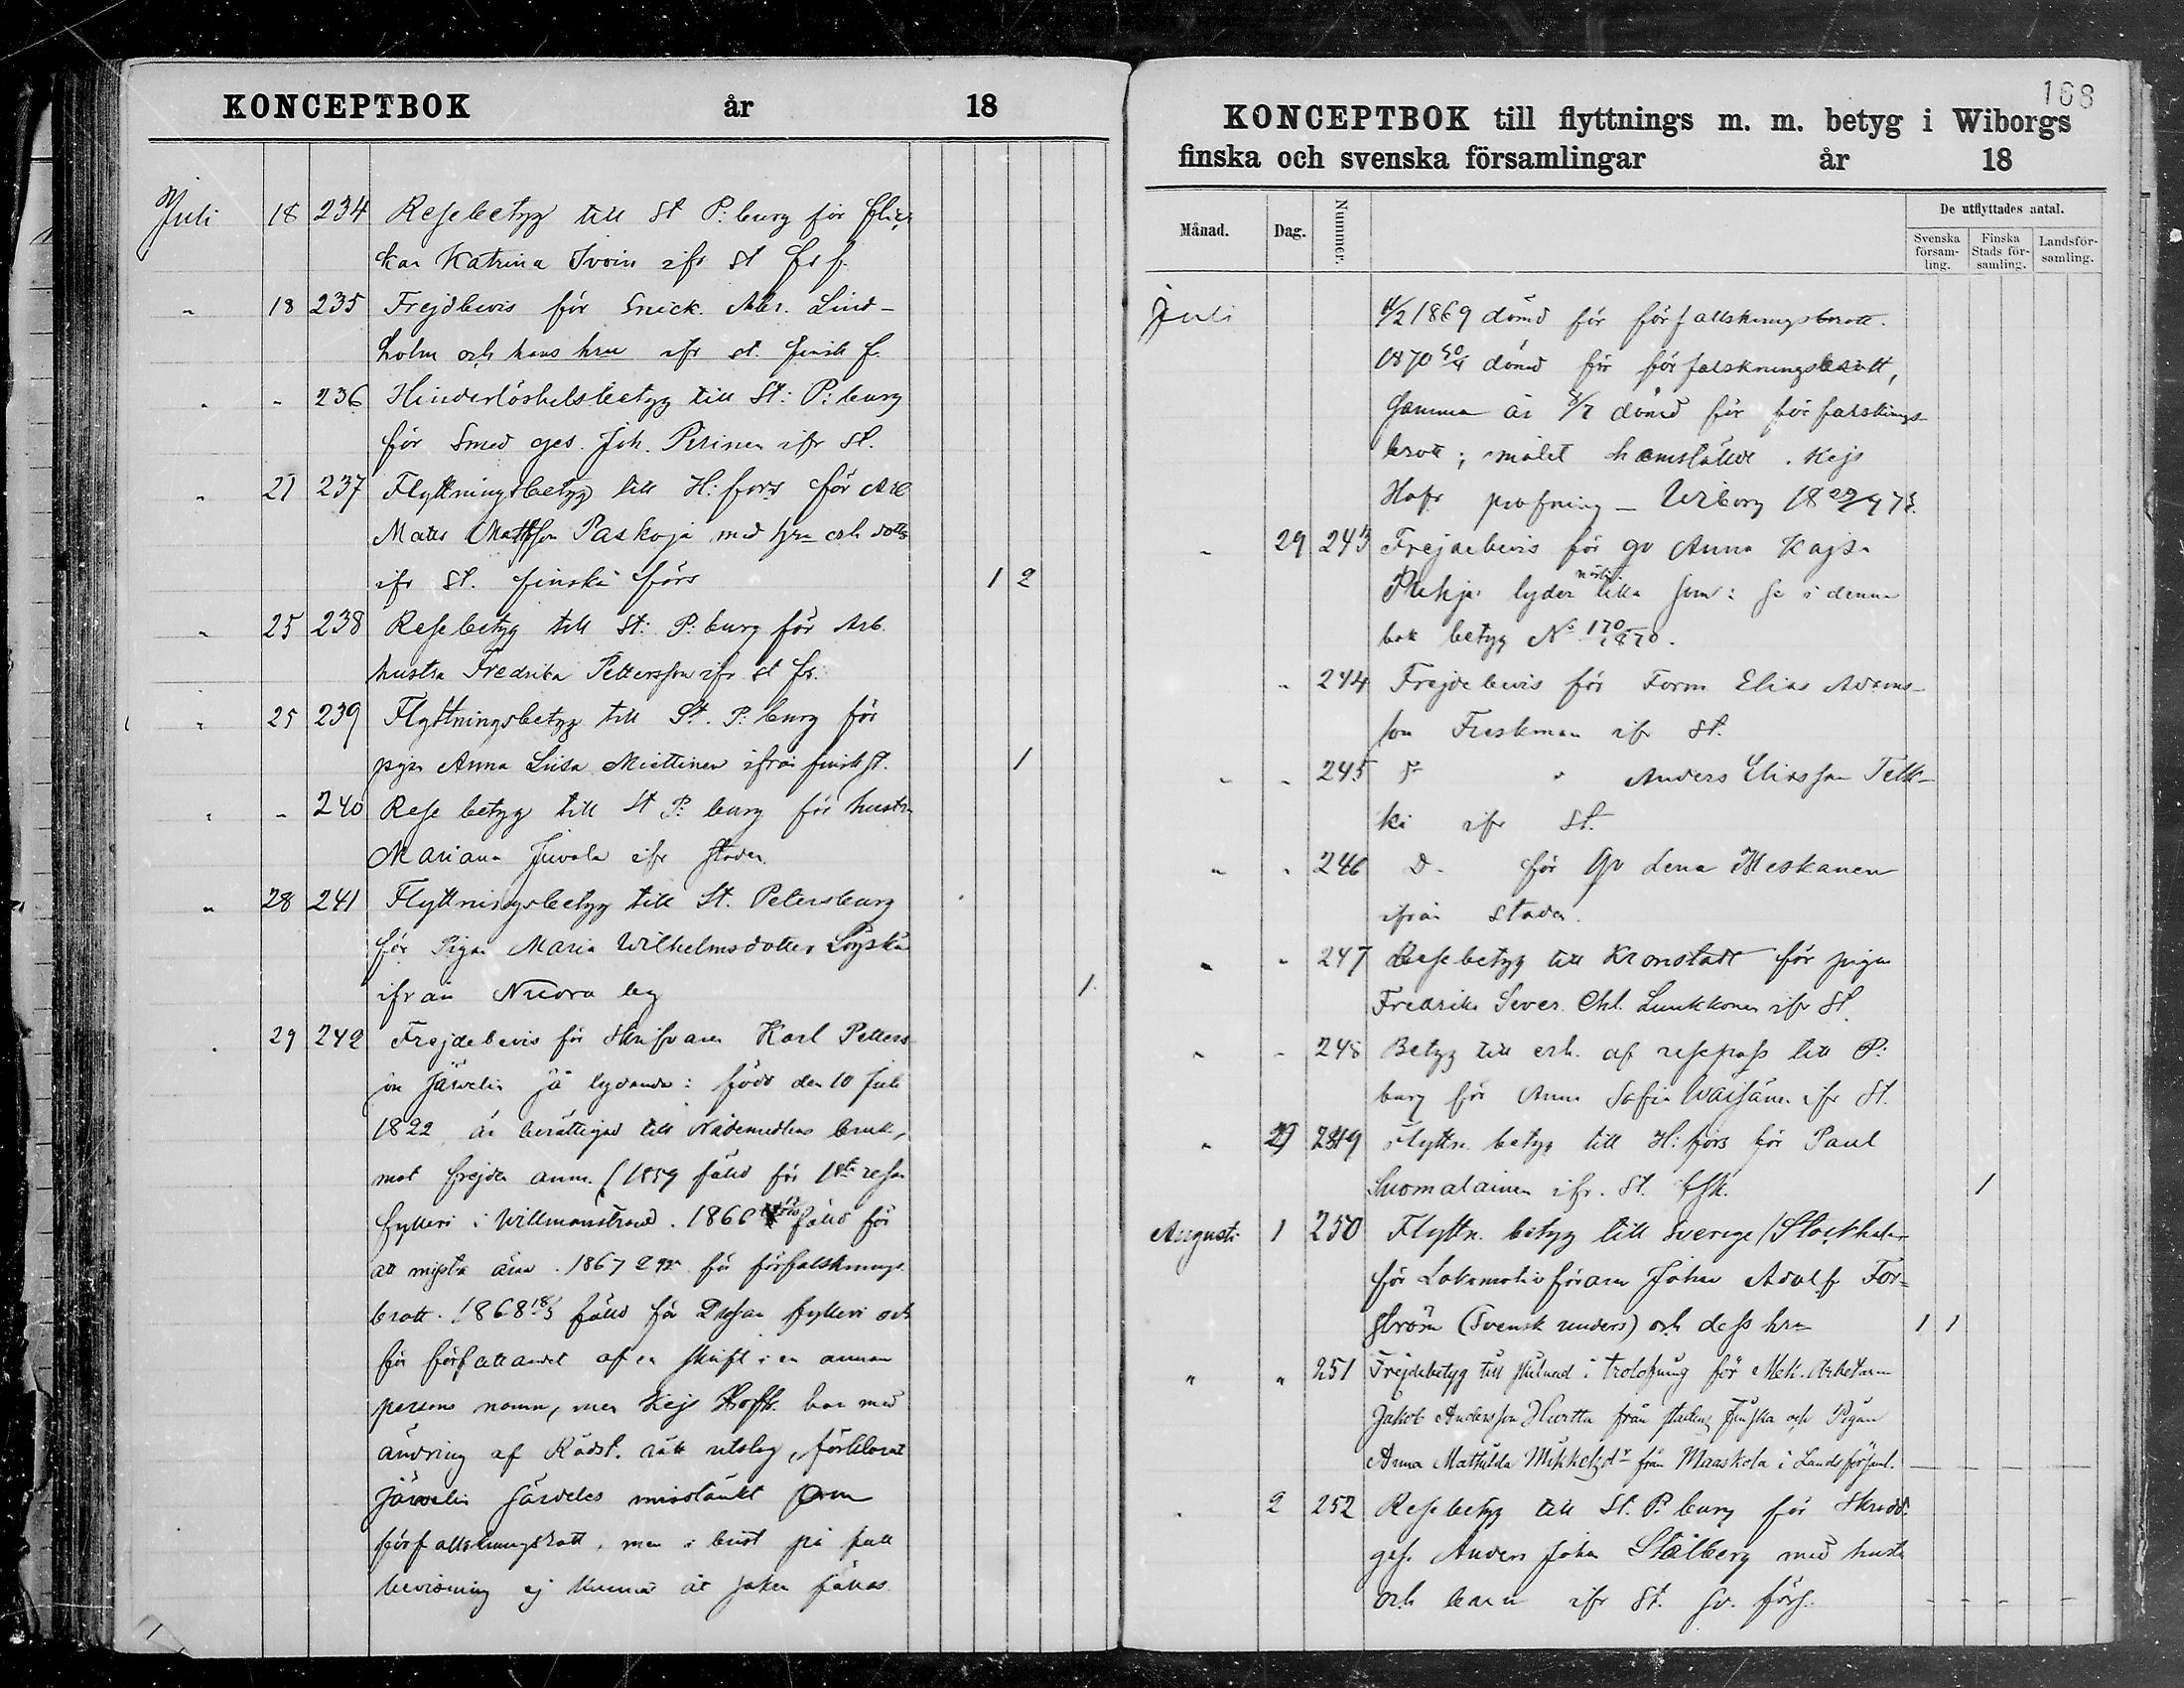 KONCEPTBOK år 18
Juli 18 234 Resebetyg till St P:burg för flic
kan Katrina Ivoin ifr St
" 18 235 Frejdbevis för Snick. Abr. Lind-
holm och hans hru ifr st. finsk f.
" " 236 Hinderlöshetsbetyg till St: P:burg
för Smed ges. Joh. Pirinen ifr St.
" 21 237 Flyttningsbetyg till H:fors för Arb
Mats Mattsson Paskoja med hru och dotter
ifr St. finska förs 1 2
" 25 238 Resebetyg till St: P:burg för Arb.
hustru Fredrika Pettersson ifr St fs.
" 25 239 Flyttningsbetyg till St. P:burg för
pigan Anna Lisa Miettinen ifrån finsk st. 1
" " 240 Rese betyg till St P:burg för hustru
Mariana Juvola ifr staden
" 28 241 Flyttningsbetyg till St. Petersburg
för Pigan Maria Wilhelmsdotter
ifrån Nuora by 1
" 29 242 Frejdebevis för Skrifvaren Karl Petters
son Järvelin så lydande: född den 10 Juli
1822 är berättigad till Nådemedlens bruk,
mot frejden anm. (1859 fälld för 1sta resan
fylleri i Willmanstrand. 1860 fälld för
att mista äran. 1867 för förfalsknings-
brott. 1868 18/3 fälld för 2 resan fylleri och
för författandet af en skrift i en annan
persons namn, men Kejs Hofr. har med
ändring af Rådst. rätt utslag, förklarat
Järvelin särdeles misstänkt
förfallskningsbrott, men i brist på full
bevisning ej kunna åt saken fällas
168
KONCEPTBOK till flyttnings m. m. betyg i Wiborgs
finska och svenska församlingar år 18
Månad. Dag. Nummer. De utflyttades antal.
Svenska försam-ling. Finska Stads för-samling. Landsför-samling.
Juli /2 1869 dömd för förfallskningsbrott.
1870 dömd för förfalskningsbrott,
samma år 8/7 dömd för förfalsknings-
brott; målet hemställdt. Kejs
Hofr pröfning – Wiborg 18 29/7 73.
" 29 243 Frejdebevis för gv Anna Kajsa
lyder lika som: se i denna
bok betyg No 170/1870.
" 244 Frejdebevis för Form Elias Adams-
son Friskman ifr St.
" " 245 Do " Anders Eliasson Telk-
ki ifr St.
" " 246 D. för Gv Lena Meskanen
ifrån Staden.
" " 247 Resebetyg till Kronstadt för pigan
Fredrika Sever. Chl. Lunkkonen ifr St.
" " 248 Betyg till erh. af resepass till P:
burg för Anna Sofia Waisänen ifr St.
" 29 249 Flyttn. betyg till H:fors för Paul
Suomalainen ifr. St. fsk. 1
Augusti 1 250 Flyttn. betyg till Sverige (Stockholm
för Lokomotivföraren Johan Adolf For-
ström (Svensk unders) och dess hru 1 1
" " 251 Frejdebetyg till skilnad i trolofning för Mek. Arbetaren
Jakob Andersson Hurtta från stadens finska och Pigan
Anna Mathilda Mikkelsdr från Maaskola i Landsförsml.
" 2 252 Resebetyg till St. P:burg för Skrädd.
ges. Anders Johan Stålberg med hustru
och barn ifr St. sv. förs.